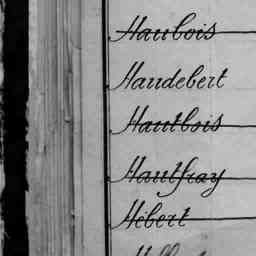 Haubois
Haudebert
Hautbois
Hautfray
Hébert